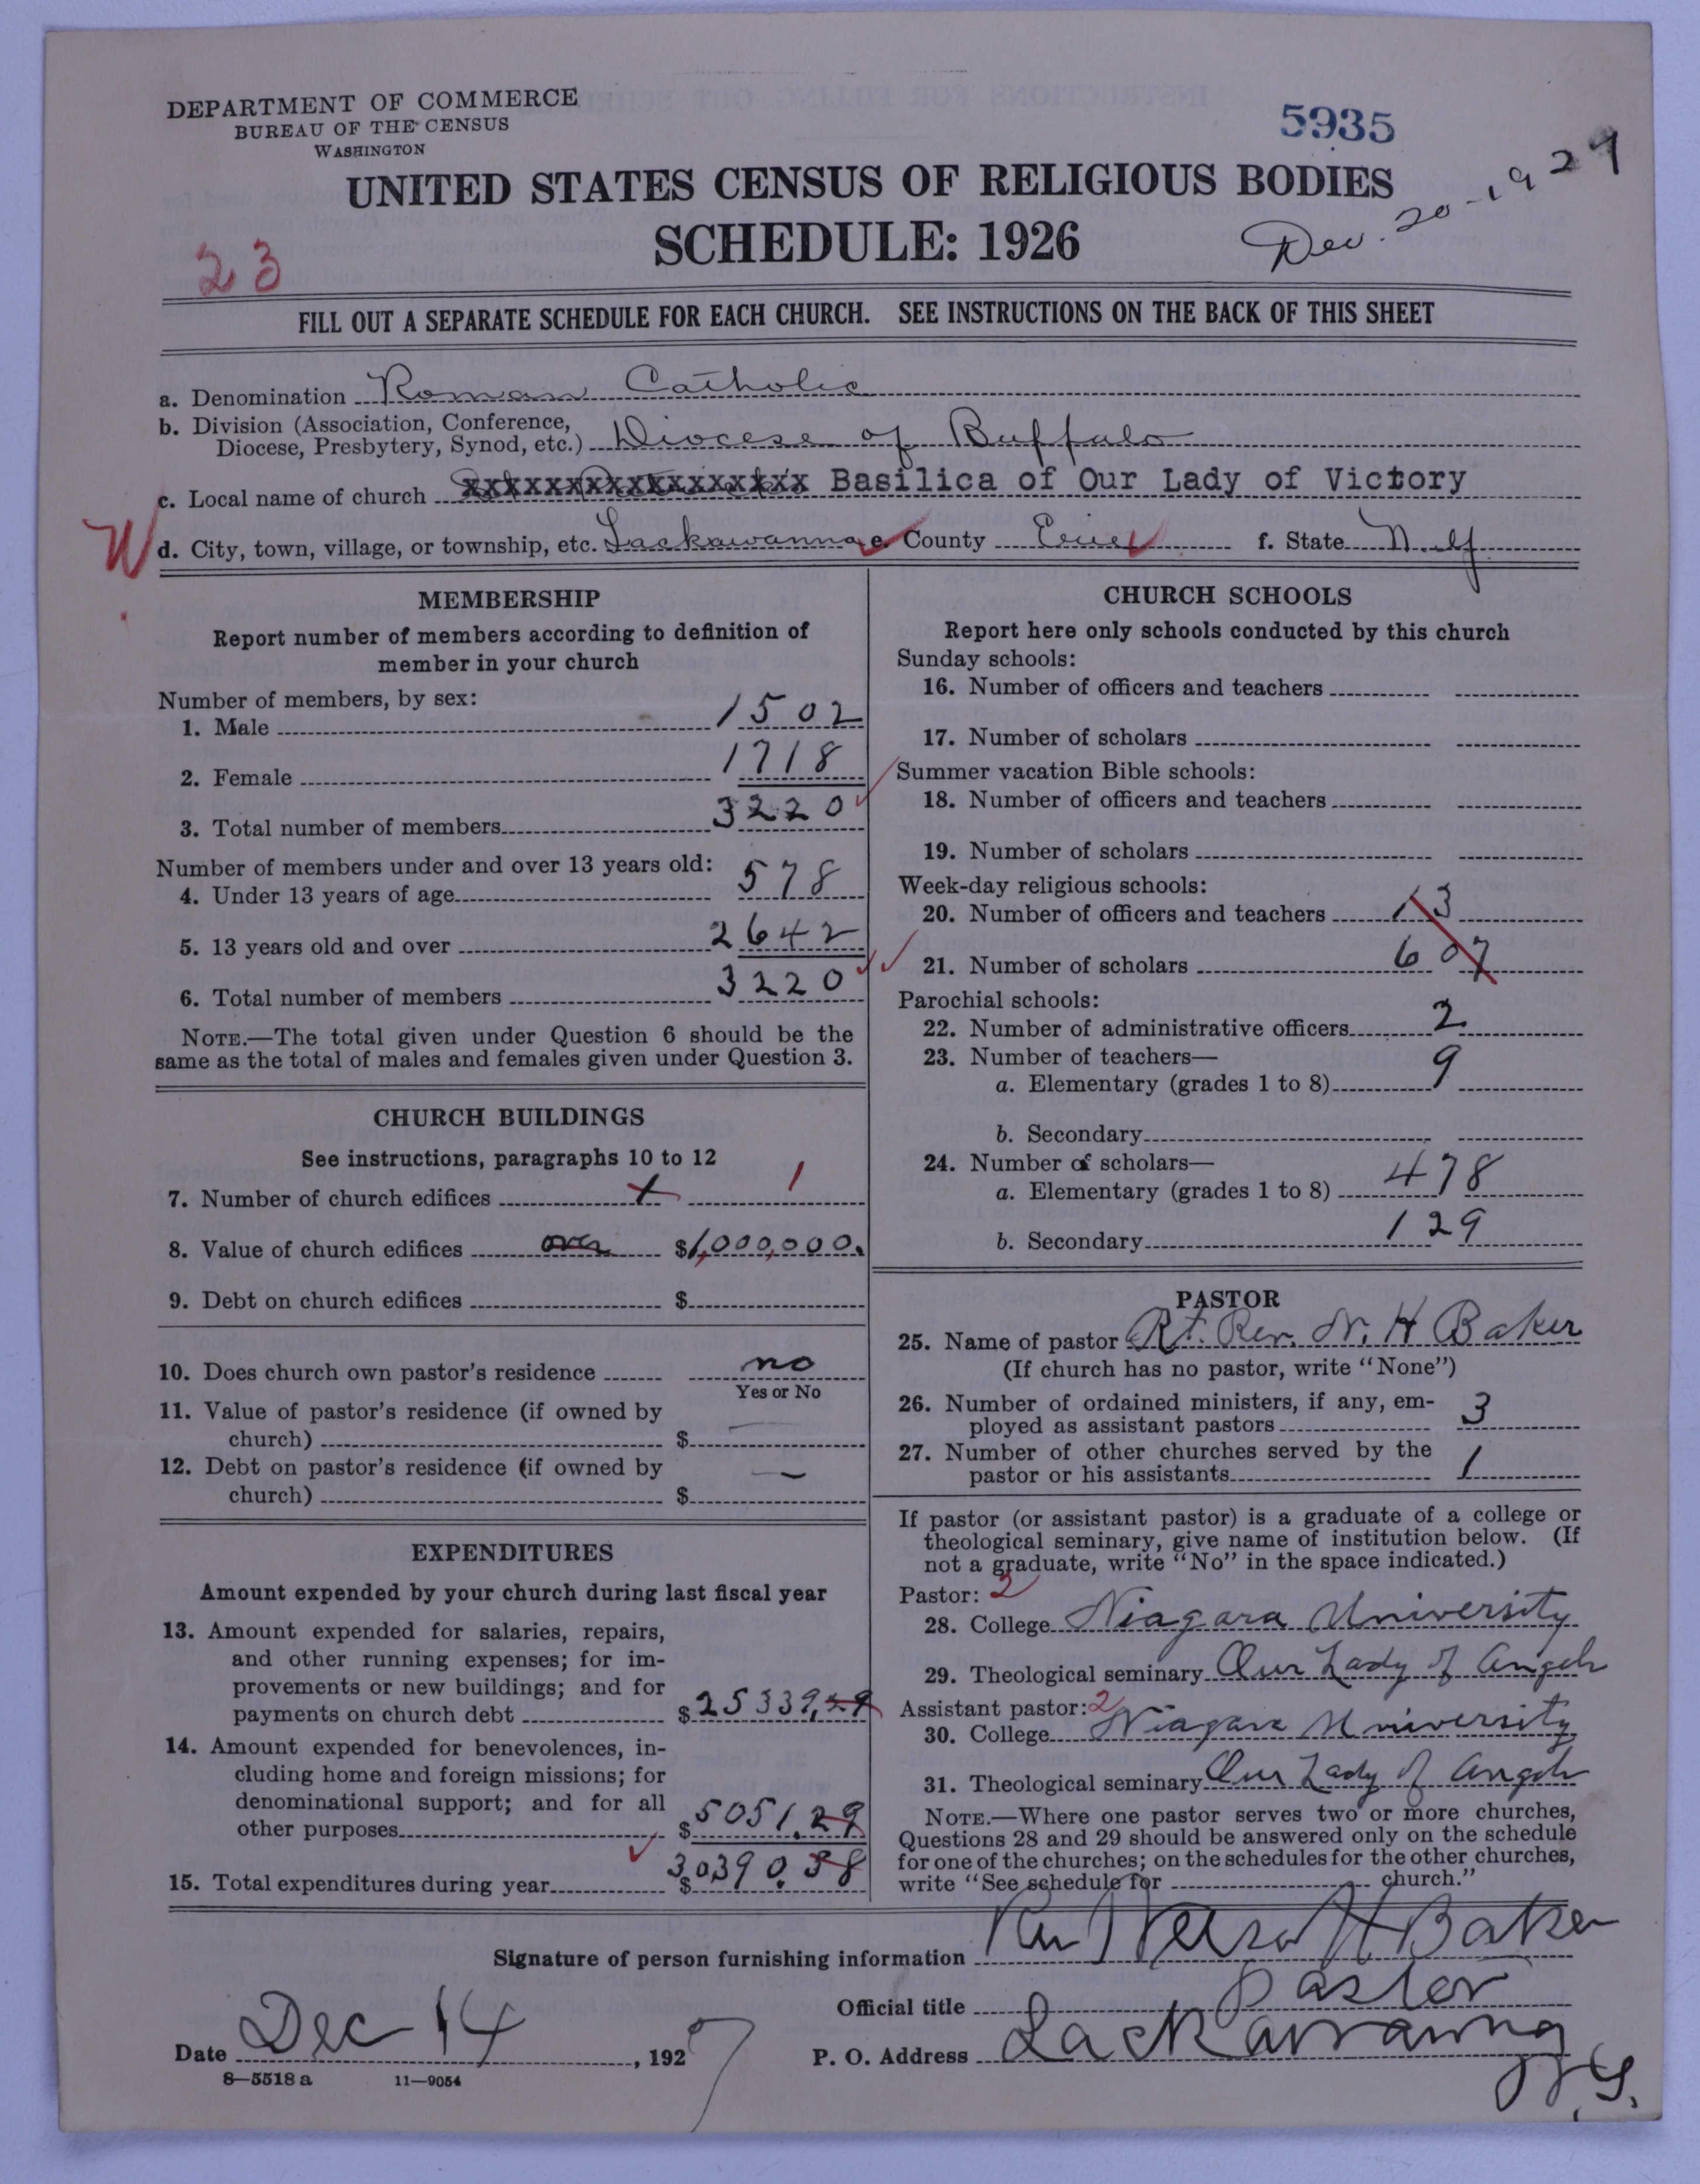 DEPARTMENT OF COMMERCE
BUREAU OF THE CENSUS
WASHINGTON
5935
UNITED STATES CENSUS OF RELIGIOUS BODIES
SCHEDULE: 1926
23
20-1927
FILL OUT A SEPARATE SCHEDULE FOR EACH CHURCH. SEE INSTRUCTIONS ON THE BACK OF THIS SHEET
a. Denomination Roman Catholic
b. Division (Association, Conference,
Diocese, Presbytery, Synod, etc.) Diocese of Buffalo
c. Local name of church xxxxxxxxxxxxxxxxxx Basilica of Our Lady of Victory
W
d. City, town, village, or township, etc. Lackawanna e. County Erie f. State N.Y
MEMBERSHIP
Report number of members according to definition of
member in your church
Number of members, by sex:
1. Male 1502
2. Female 1718
3. Total number of members 3220
Number of members under and over 13 years old:
4. Under 13 years of age 578
5. 13 years old and over 2642
6. Total number of members 3220
NOTE.—The total given under Question 6 should be the
same as the total of males and females given under Question 3.
CHURCH BUILDINGS
See instructions, paragraphs 10 to 12
7. Number of church edifices 1 1
8. Value of church edifices over $1,000,000.
9. Debt on church edifices $
10. Does church own pastor's residence no
Yes or No
11. Value of pastor's residence (if owned by
church) $ —
12. Debt on pastor's residence (if owned by
church) $ —
EXPENDITURES
Amount expended by your church during last fiscal year
13. Amount expended for salaries, repairs,
and other running expenses; for im-
provements or new buildings; and for
payments on church debt $25339,29
14. Amount expended for benevolences, in-
cluding home and foreign missions; for
denominational support; and for all
other purposes $5051.29
15. Total expenditures during year $30390.58
CHURCH SCHOOLS
Report here only schools conducted by this church
Sunday schools:
16. Number of officers and teachers
17. Number of scholars
Summer vacation Bible schools:
18. Number of officers and teachers
19. Number of scholars
Week-day religious schools:
20. Number of officers and teachers 13
21. Number of scholars 607
Parochial schools:
22. Number of administrative officers 2
23. Number of teachers—
a. Elementary (grades 1 to 8) 9
b. Secondary
24. Number of scholars—
a. Elementary (grades 1 to 8) 478
b. Secondary 129
PASTOR
25. Name of pastor Rt. Rev. N. H Baker
(If church has no pastor, write "None")
26. Number of ordained ministers, if any, em-
ployed as assistant pastors 3
27. Number of other churches served by the
pastor or his assistants 1
If pastor (or assistant pastor) is a graduate of a college or
theological seminary, give name of institution below. (If
not a graduate, write "No" in the space indicated.)
Pastor: 2
28. College Niagara University
29. Theological seminary Our Lady of Angels
Assistant pastor: 2
30. College Niagara University
31. Theological seminary Our Lady of Angels
NOTE.—Where one pastor serves two or more churches,
Questions 28 and 29 should be answered only on the schedule
for one of the churches; on the schedules for the other churches,
write "See schedule for church."
Signature of person furnishing information Rev Nelson H Baker
Official title pastor
Date Dec 14, 1927
P. O. Address Lackawanna
N.Y.
8—5518 a 11—9054